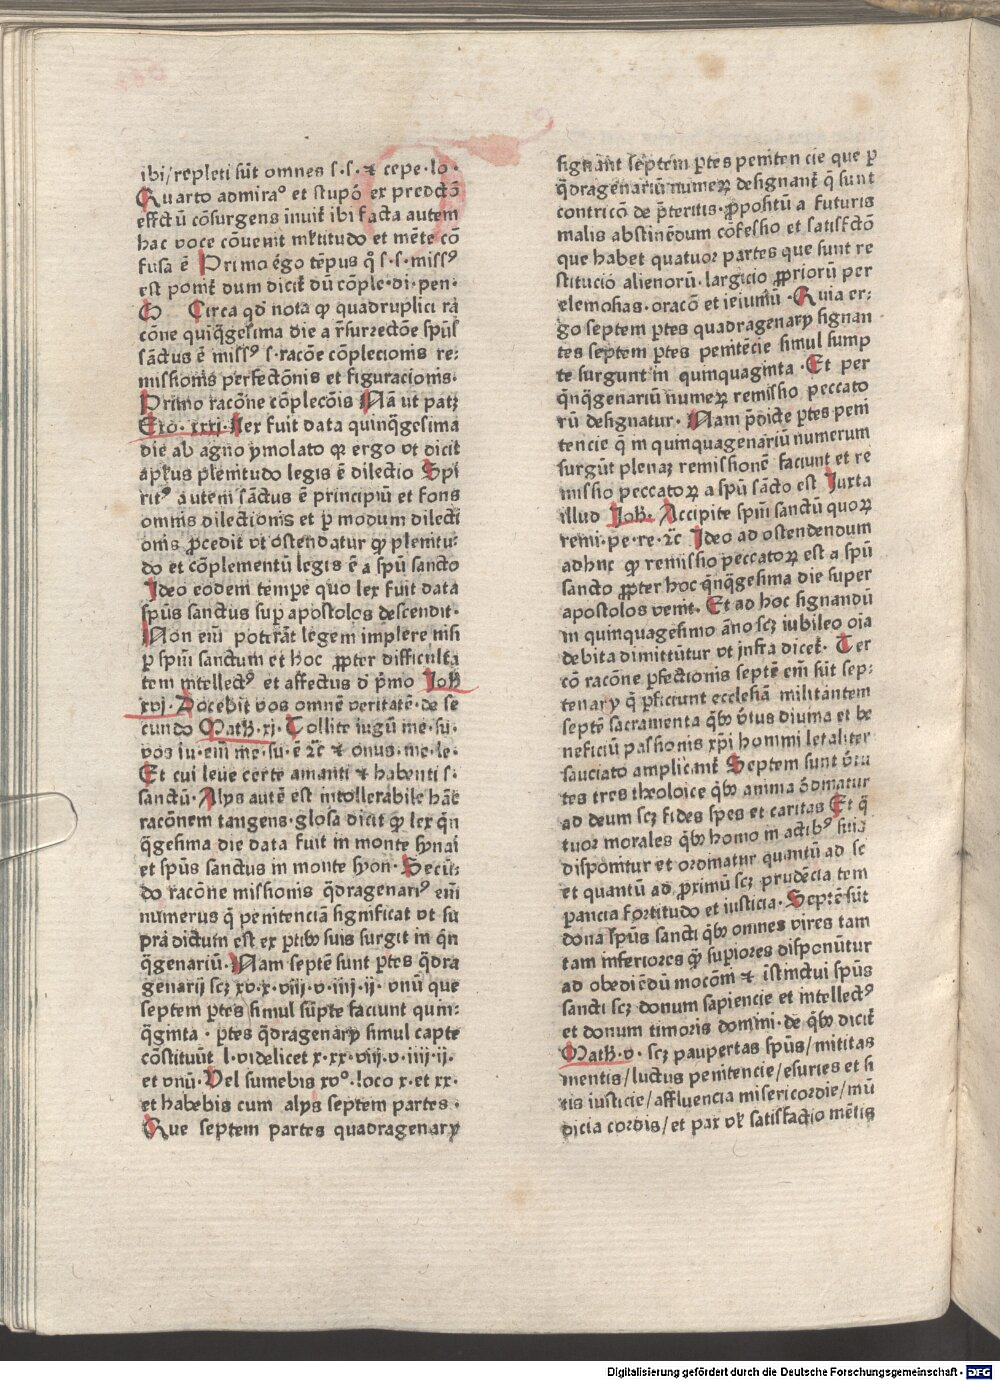 ibi/repleti sūt omnes s·s·⁊ cepe·lo·
Quarto admira° et stupō ex predctō
effctū cōsurgens inuit̄ ibi facta autem
hac voce cōuenit mr̄titudo et mēte cō
fusa ē Primo ēgo tēpus qͦ s·s·miss⁹
est ponit̄ dum dicit̄ dū cōple·di·pen·
Circa qd̄ nota qꝫ quadruplici rā
cōne quīq̄gesima die a r̄surrectōe spūs
sāctus ē miss⁹ s·racōe cōplecionis re:
missionis perfectōnis et figuracionis·
Primo racōne cōplecōis Nā ut patꝫ
Exo·xxxj·Lex fuit data quīnq̄gesima
die ab agno ymolato qꝛ ergo vt dicit
aplus plenitudo legis ē dilectio Spi
rit⁹ autem sāctus ē principiū et fons
omnis dilectionis et ꝑ modum dilecti
onis ꝓcedit vt ostendatur qꝫ plenitu:
do et cōplementū legis ē a spū sancto
Ideo eodem tempēe quo lex fuit data
spūs sanctus suꝑ apostolos descendit·
Non eīn poterāt legem implere nisi
ꝑ spīm sanctum et hoc ꝓpter difficulta
tem intellect⁹ et affectus d̄ pīmo Joh̄
xvj·Docebit vos omnē veritatē·de se
cundo Math̄·xj·Tollite iugū me·su·
vos iu·eīn me·su·ē ⁊c̄ ⁊ onus·me·le·
Et cui leue certe amanti ⁊ habenti s·
sanctū·Alys autē est intollerabile hāc
racōnem tangens·glosa dicit qꝫ lex q̄n
q̄gesima die data fuit in monte synai
et spūs sanctus in monte syon·Secū:
do racōne missionis q̄dragenari⁹ eīn
numerus q̄ penitenciā significat vt su
pra dictum est ex ꝑtibꝫ suis surgit in q̄n
q̄genariū·Nam septē sunt ꝑtes q̄dra
genarij scꝫ xv·x·viij·v·iiij·ij·vnū que
septem ꝑtes simul sūpte faciunt quin:
q̄ginta·ꝑtes q̄dragenary simul capte
cōstituūt l·videlicet x·xx·viij·v·iiij·ij·
et vnū·Vel sumebis xv°·loco x·et xx·
et habebis cum alys septem partes·
Que septem partes quadragenary
signāt septem ꝑtes peniten cie que ꝑ
q̄dragenariū numeꝝ designant̄ q̄ sunt
contricō de p̄teritis·ꝓpositū a futuris
malis abstinēdum cōfessio et satisfctō
que habet quatuor partes que sunt re
stitucio alienorū·largicio ꝓpriorū per
elemosias·oracō et ieiuniū·Quia er:
go septem ꝑtes quadragenary signan
tes septem ꝑtes penitēcie simul sump
te surgunt in quinquaginta·Et per
q̄nq̄genariū numeꝝ remissio peccato
rū designatur·Nam p̄dicte ꝑtes peni
tencie q̄ in quinquagenariū numerum
surgūt plenaꝫ remissionē faciunt et re
missio peccatoꝝ a spū sācto est Juxta
illud Joh̄·Accipite spīm sanctū quoꝝ
remi·pe·re·⁊c̄ Ideo ad ostendendum
adhuc qꝫ remissio peccatoꝝ est a spū
sancto ꝓpter hoc q̄nq̄gesima die super
apostolos venit·Et ad hoc signandū
in quinquagesimo āno scꝫ iubileo oīa
debita dimittūtur vt infra dicet̄·Ter
cō racōne ꝑfectionis septē eīn sūt sep:
tenary q̄ ꝑficiunt ecclesiā militantem
septē sacramenta q̄bꝫ v̄tus diuina et be
neficiū passionis xp̄i homini letaliter
sauciato amplicant̄ Septem sunt v̄tu
tes tres theoloice q̄bꝫ anima ordinatur
ad deum scꝫ fides spes et caritas Et q̄
tuor morales q̄bꝫ homo in actibꝰ suis
disponitur et ordinatur quantū ad se
et quantū ad ꝓximū scꝫ prudēcia tem
pancia fortitudo et iusticia·Septē sūt
dona spūs sancti q̄bꝫ omnes vires tam
tam inferiores qꝫ suꝑiores disponūtur
ad obediēdū mocōni ⁊ īstinctui spūs
sancti scꝫ donum sapiencie et intellect⁹
et donum timoris domini·de q̄bꝫ dicit̄
Math̄·v·scꝫ paupertas spūs/mititas
mentis/luctus penitencie/esuries et si
tis iusticie/affluencia misericordie/mū
dicia cordis/et pax vl̄ satisfactio mētis
Digitalisierung gefördert durch die Deutsche Forschungsgemeinschaft · DFG